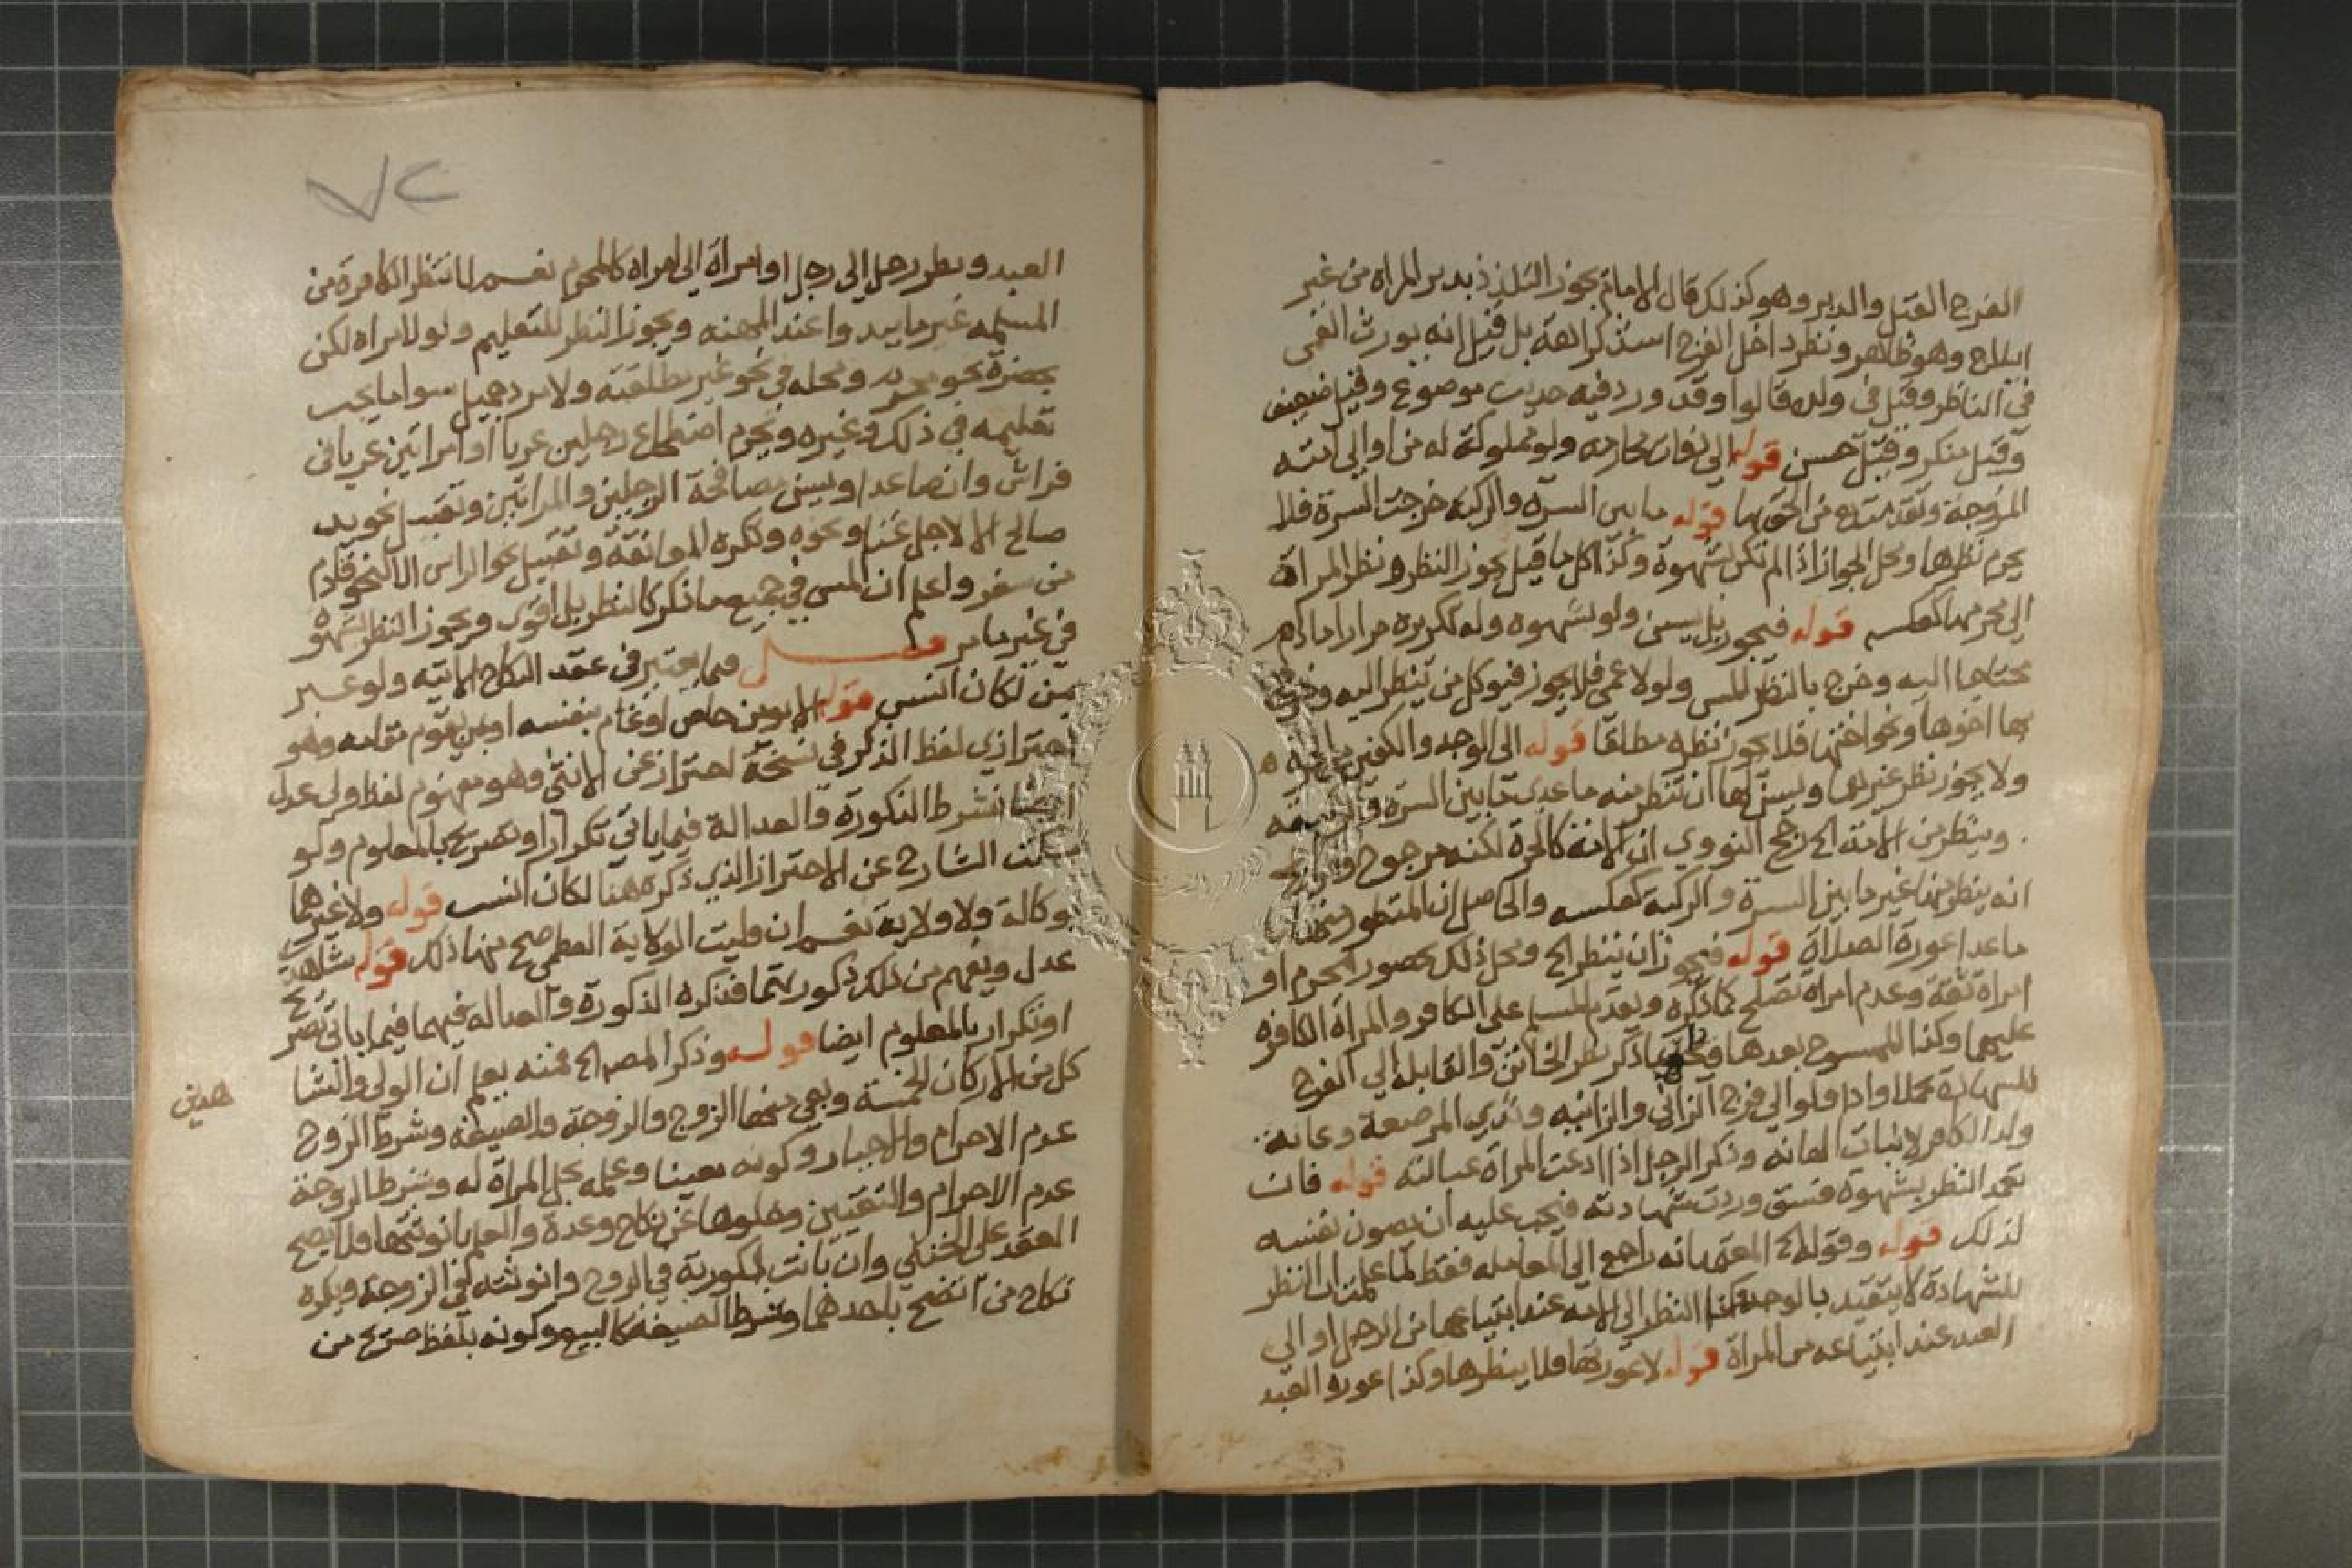 الفرج القبل والدبر وهو كذلك قال الامام يجوز التلذذ بدبر المراة من غير
ايلاج وهو ظاهر ونظر داخل الفرج اشد كراهة بل قيل انه يورث العمى
في الناظر وقيل في ولده قالوا وقد ورد فيه حديث موضوع وقيل ضعيف
وقيل منكر وقيل حسن قوله الى ذوات محارمه ولو مملوكة له من او الى امته
المزوجة وتقدمت مع من الحق بها قوله ما بين السرة والركبة خرجت السرة فلا
يحرم نظرها ومحل الجواز اذا لم تكن شهوة وكذا كل ما قيل بجواز النظر ونظر المراة
الى محرمها كعكسه قوله فيجوز بل يسن ولو بشهوة وله تكريره مرارا ما دام
محتاجا اليه وخرج بالنظر المس ولو لاعمى فلا يجوز فيوكل من ينظر اليه وخرج
بها اخوها ونحو اختها فلا يجوز نظره مطلقا قوله الى الوجه والكفين
ولا يجوز نظر غيرهما ويسن لها ان تنظر منه ما عدى ما بين السرة والركبة
وينظر من الامة الخ رجح النووي ان الامة كالحرة لكنه مرجوح والراجح
انه ينظر منها غير ما بين السرة والركبة كعكسه والحاصل ان المنظور منهما
ما عدا عورة الصلاة قوله فيجوز ان ينظر الخ ومحل ذلك بحضور محرم او
امراة ثقة وعدم امراة تصلح كما ذكره وتقدم المسلم على الكافر والمراة الكافرة
عليهما وكذا الممسوح بعدها ذكر نظر الخاتن والقابلة الى الفرج
للشهادة تحملا واداء ولو الى فرج الزاني والزانية وثدي المرضعة وعانة
ولد الكافر لانبات العانة وذكر الرجل اذا ادعت المراة عبالته قوله فان
تعمد النظر بشهوة فسق وردت شهادته فيجب عليه ان يصون نفسه
لذلك قوله وقوله الخ المعتمد انه راجع الى المعاملة فقط لما علمت ان النظر
للشهادة لا يتقيد بالوجه كذا النظر الى الامة عند ابتياعها من الرجل او الى
العبد عند ابتياعه من المراة قوله لا عورتها فلا ينظرها وكذا عورة العبد
٧٢
العبد ونظر رجل الى رجل او امراة الى امراة كالمحرم نعم لا تنظر الكافرة من
المسلمة غير ما يبدوا عند المهنة ويجوز النظر للتعليم ولو لامراة لكن
بحضرة نحو محرم ومحله في نحو غير مطلقته ولامرد جميل سوا ما يجب
تعليمه في ذلك وغيره ويحرم اضطجاع رجلين عريا او امراتين عريا في
فراش وان تباعدا ويسن مصافحة الرجلين والمراتين وتقبيل نحو يد
صالح الا لاجل غنا ونحوه وتكره المعانقة وتقبيل نحو الراس الا لنحو قادم
من سفر واعلم ان المس في جميع ما ذكر كالنظر بل اقوى ويجوز النظر لشهوة
في غير ما مر فصل فيما يعتبر في عقد النكاح الاتية ولو عبر
بمن لكان انسب قوله الا بولي خاص او عام بنفسه او بمن يقوم مقامه وهو
احترازي لفظ الذكر في نسخة احتراز عن الانثى وهو مفهوم لفظ ولي عدل
ايضا فشرط الذكورة والعدالة فيما ياتي تكرارا وتصريح بالمعلوم ولو
سكت الشارح عن الاحتراز الذي ذكره هنا لكان انسب قوله ولا غيرهما
بوكالة ولا ولاية نعم ان وليت الولاية العظمى صح منها ذلك قوله شاهدي
عدل ويفهم من ذلك ذكورتهما فذكره الذكورة والعدالة فيهما فيما ياتي تصريح
او تكرار بالمعلوم ايضا قوله وذكر المصـ الخ منه يعلم ان الولي والشا
هدين
كل من الاركان الخمسة وبقي منها الزوج والزوجة والصيغة وشرط الزوج
عدم الاحرام والاجبار وكونه معينا وعلمه بحل المراة له وشرط الزوجة
عدم الاحرام والتعيين وخلوها عن نكاح وعدة والعلم بانوثتها فلا يصح
العقد على الخنثى وان بانت ذكوريته في الزوج وانوثته في الزوجة ويكره
نكاح من اتضح باحدهما وشرط الصيغة كالبيع وكونه بلفظ صريح من